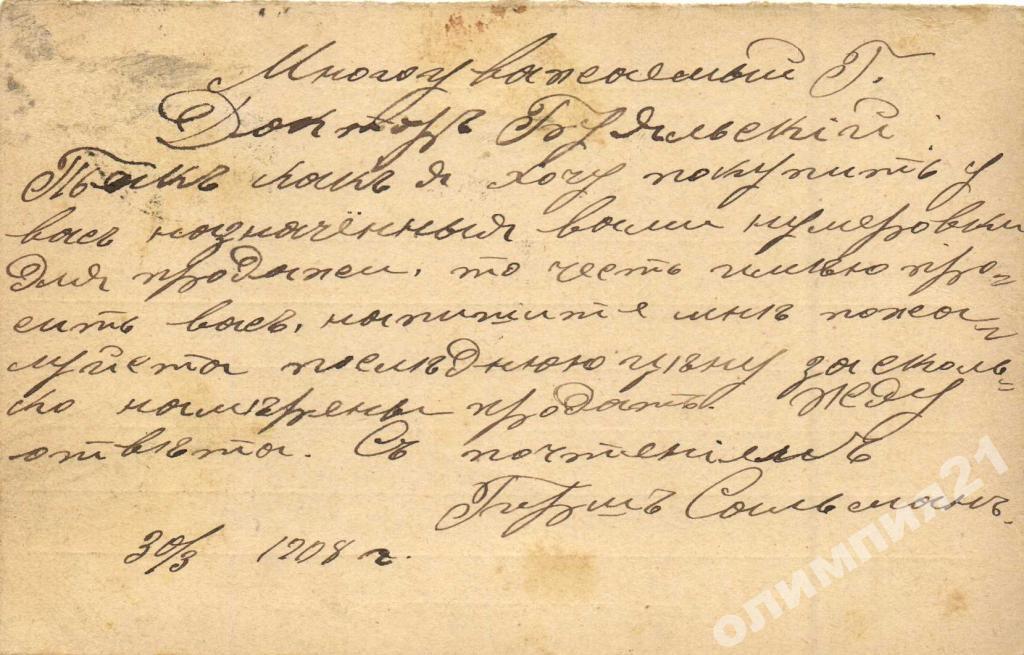 Многоуважаемый Г.
Докторъ
Такъ какъ я хочу покупить у
васъ назначённыя вами
для продажи, то честь имѣю про=
сить васъ, напишите мнѣ пожа=
луйста послѣднюю цѣну засколь=
ко намѣрены продать. Жду
отвѣта. Съ почтеніемъ
Гиршъ Сальманъ.
30/3 1908 г.
олимпия21